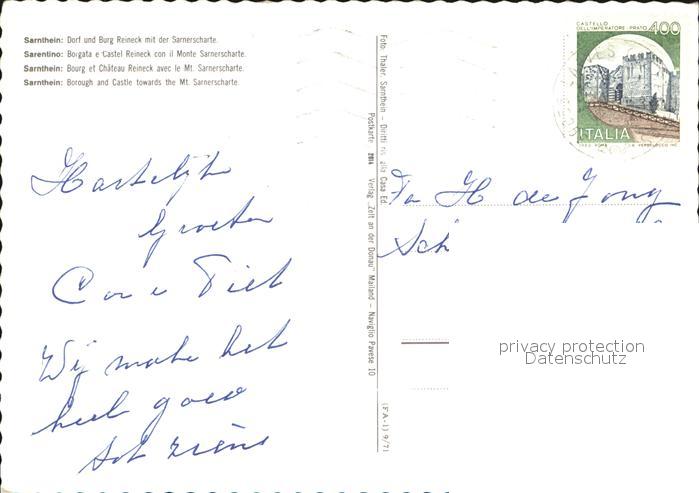 Sarnthein: Dorf und Burg Reineck mit der Sarnerscharte.
Sarentino: Borgata e Castel Reineck con il Monte Sarnerscharte.
Sarnthein: Bourg et Château Reineck avec le Mt. Sarnerscharte.
Sarnthein: Borough and Castle towards the Mt. Sarnerscharte.
Hartelijke
Groeten
Cor e Piet
Wij maken het
heel goed
tot ziens
Foto: Thaler, Sarnthein - Diritti ris. alla Casa Ed.
Postkarte Verlag „Zelt an der Donau" Mailand - Naviglio Pavese 10
(FA-1) 9/71
CASTELLO
DELL'IMPERATORE · PRATO 400
ITALIA
Fa H de Jong
Sch
privacy protection
Datenschutz